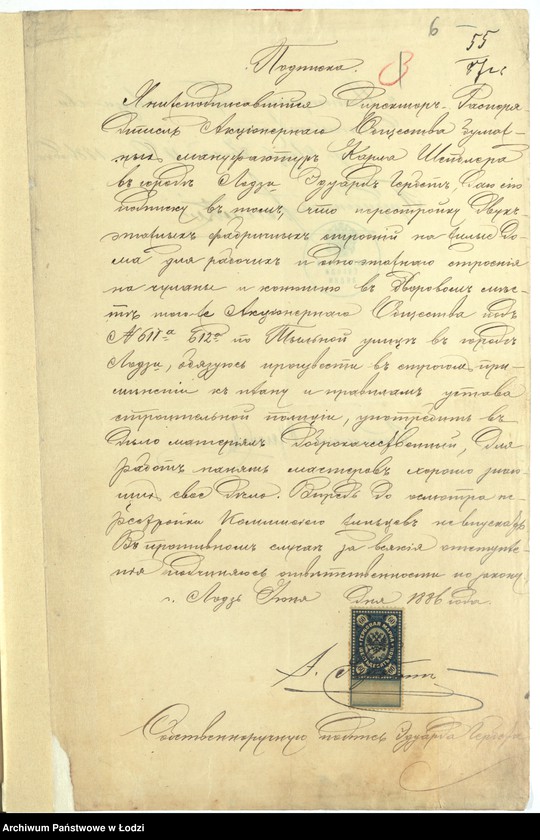 6
55
87 г
3
Подписка.
Я нижеподписавшійся Директоръ-Распоря-
дитель Акціонернаго Общества бумаж-
ныхъ мануфактуръ Карла Шейблера
въ городѣ Лодзи Эдуардъ Гербстъ, даю сію
подписку въ томъ, что перестройку двухъ-
этажныхъ фабричныхъ строеній на жилые до-
ма для рабочихъ и одноэтажнаго строенія
на чуланы и конюшню въ дворовомъ мѣс-
тѣ того же Акціонернаго Общества подъ
№ 611а 612а по улицѣ въ городѣ
Лодзи, обязуюсь произвести въ строгомъ при-
мѣненіи къ плану и правиламъ устава
строительной полиціи, употребить въ
дѣло матеріялъ доброкачественный, для
работъ нанять мастеровъ хорошо знаю-
щихъ свое дѣло. Впредь до осмотра пе-
рестройки Коммисіею жильцовъ не впускать.
Въ противномъ случаѣ за всякія отступле-
нія подчиняюсь отвѣтственности по закону
г. Лодзь Іюня дня 1886 года.
Собственноручную подпись Эдуарда Гербста
Archiwum Państwowe w Łodzi